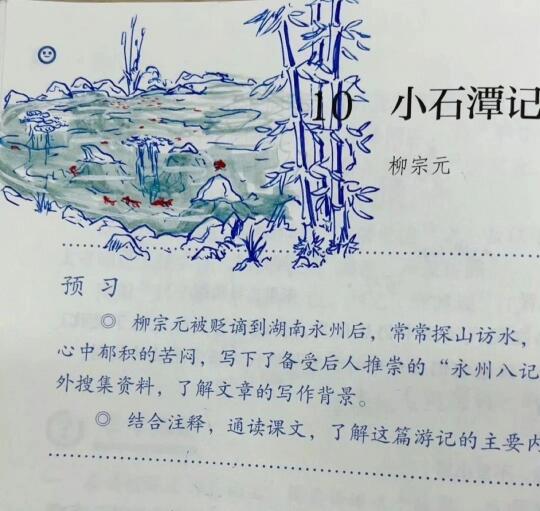 10 小石潭记
柳宗元
预习
◎ 柳宗元被贬谪到湖南永州后，常常探山访水，
心中郁积的苦闷，写下了备受后人推崇的“永州八记
外搜集资料，了解文章的写作背景。
◎ 结合注释，通读课文，了解这篇游记的主要内